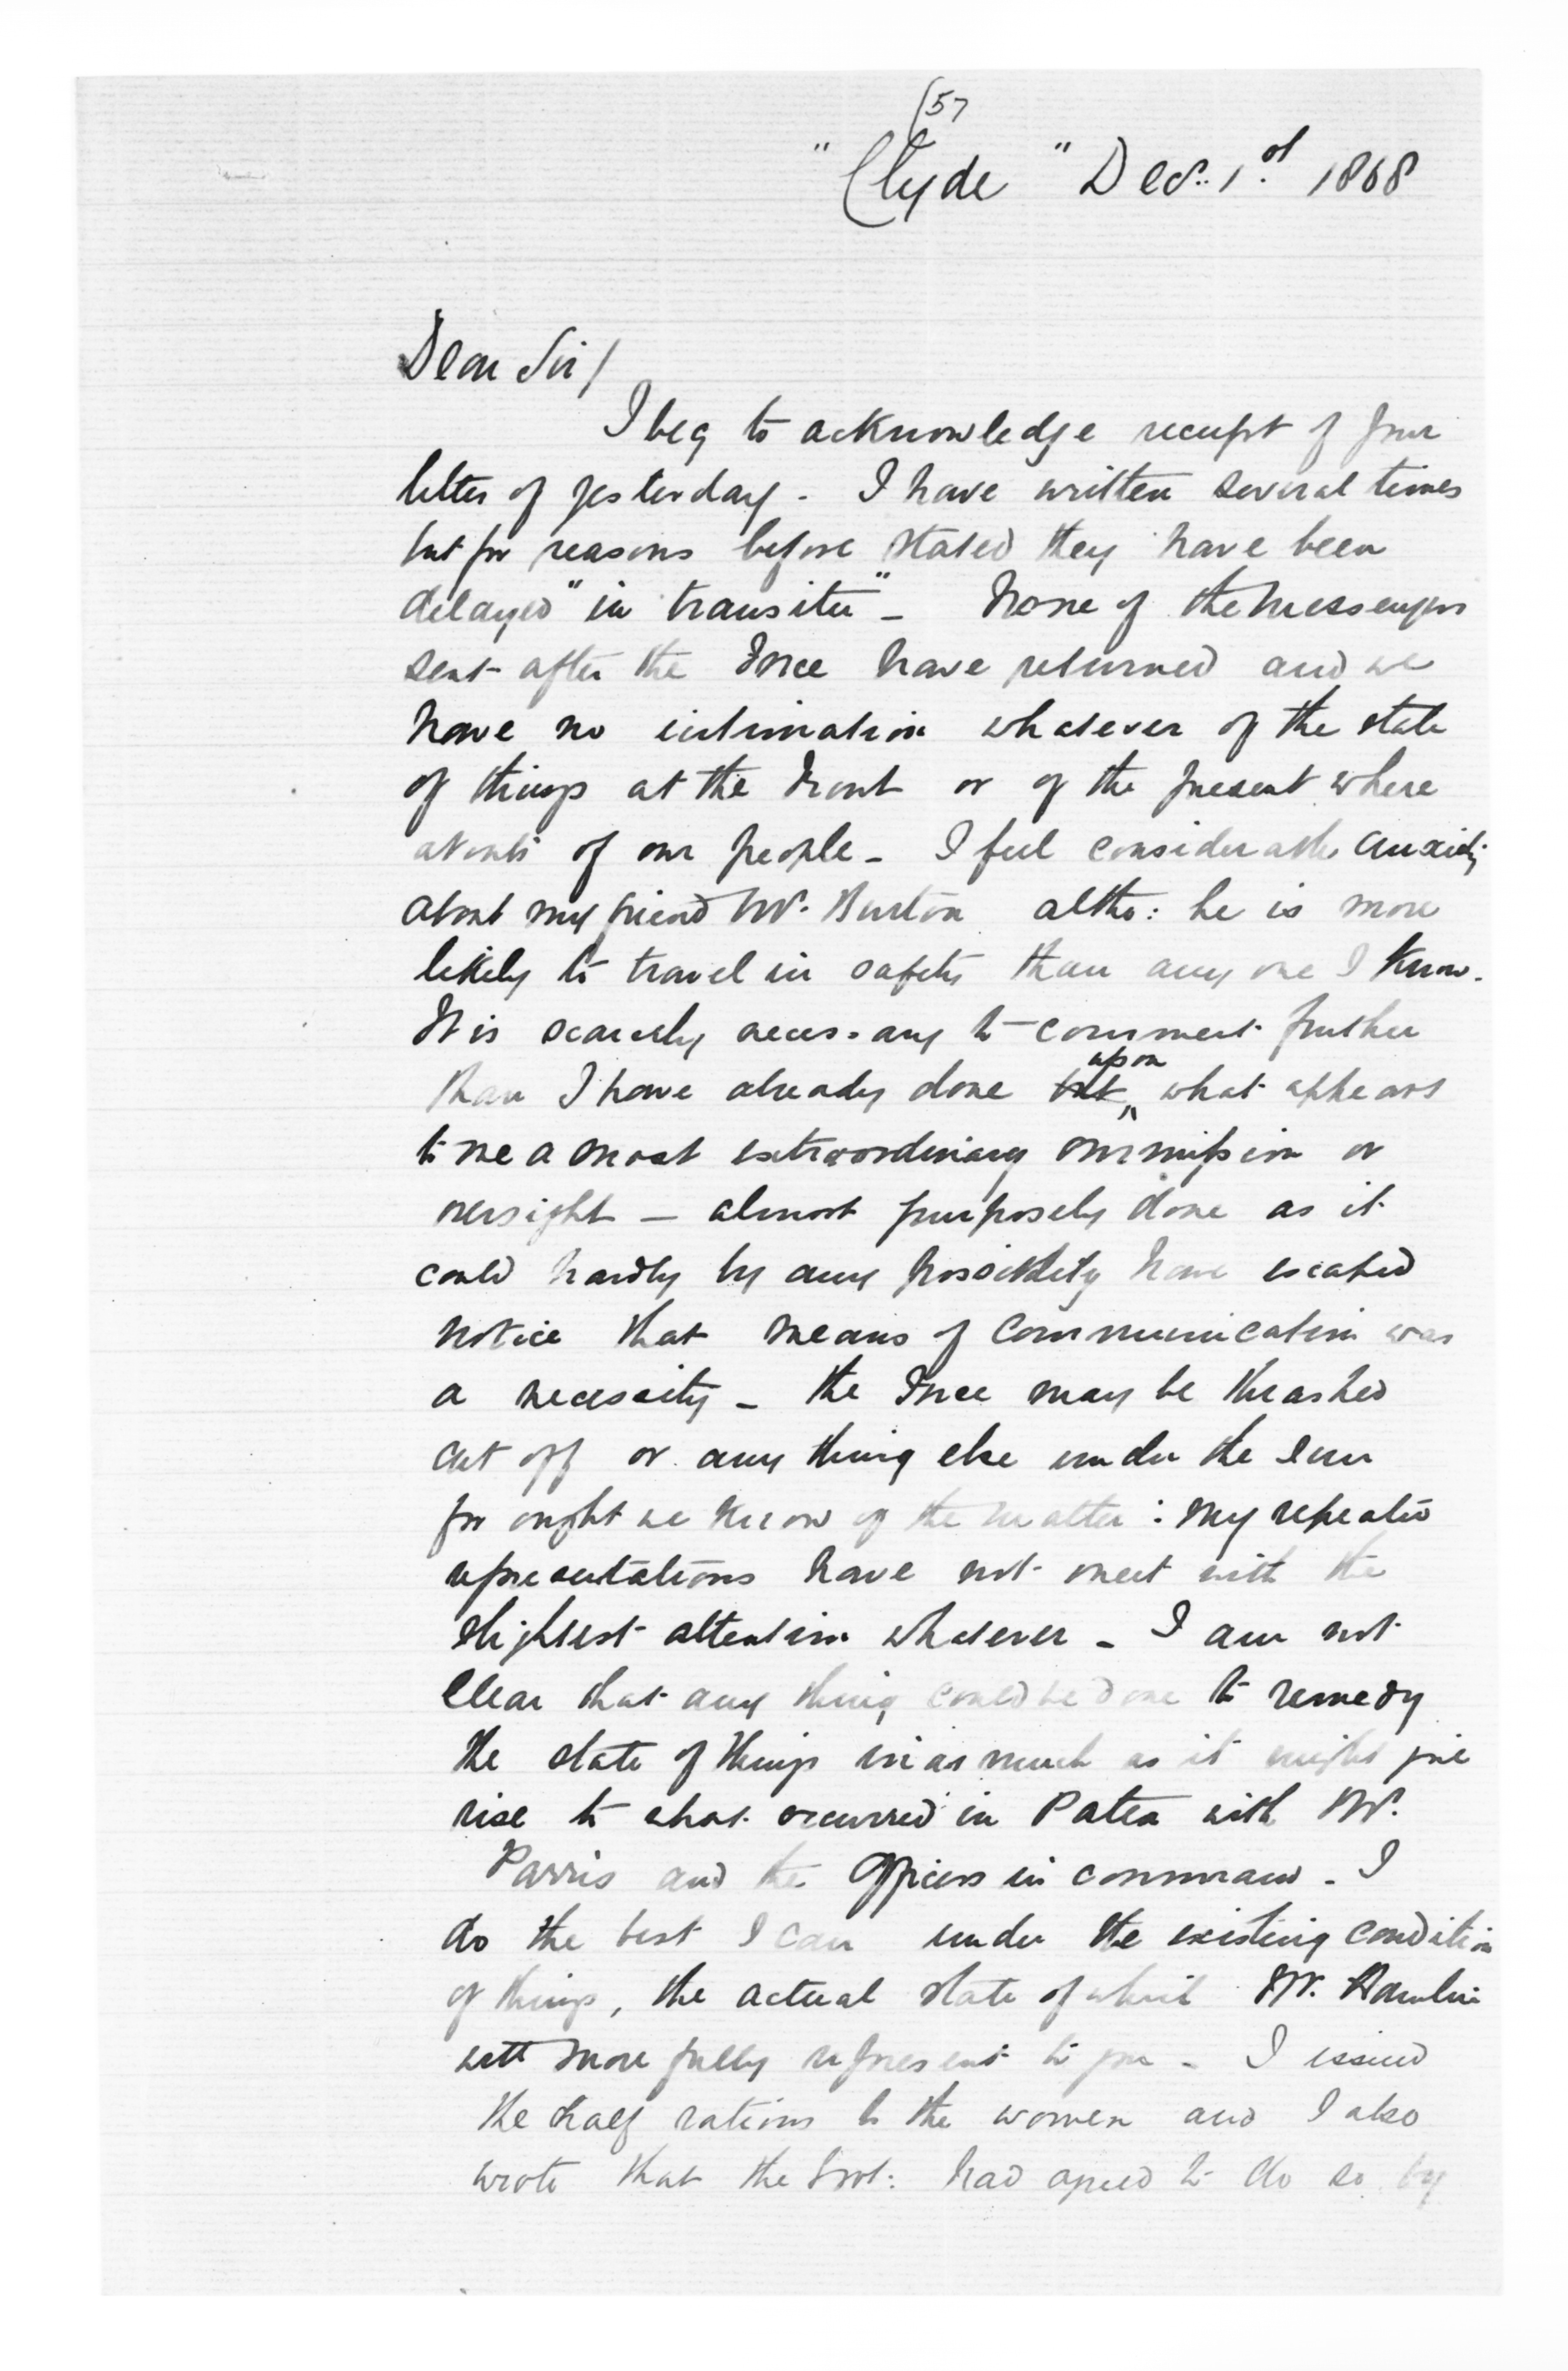 (57
"Clyde" Dec.. 1.st 1868
Dear Sir/
I beg to acknowledge receipt of your
letter of yesterday - I have written several times
but for reasons before stated they have been
delayed "in transitu" - None of the Messengers
sent after the Force have returned and we
have no intimation whatever of the state
of things at the Front or of the present where
abouts of our people - I feel considerable anxiety
about my friend Mr. Burton altho: he is more
likely to travel in safety than any one I know.
It is scarcely necessary to comment further
than I have already done but upon what appears
to me a most extraordinary ommission or
oversight - almost purposely done as it
could hardly by any possibility have escaped
notice that means of communication was
a necessity - the Force may be thrashed
cut off or any thing else under the sun
for ought we know of the matter : my repeated
representations have not meet with the
slightest attention whatever - I am not
clear that any thing could be done to remedy
the state of things in as much as it might give
rise to what occurred in Patea with Mr.
Parris and the Officers in command - I
do the best I can under the existing condition
of things, the actual state of which Mr. Hamlin
will more fully represent to you - I issued
the half rations to the women and I also
wrote that the Govt: had agreed to do so by